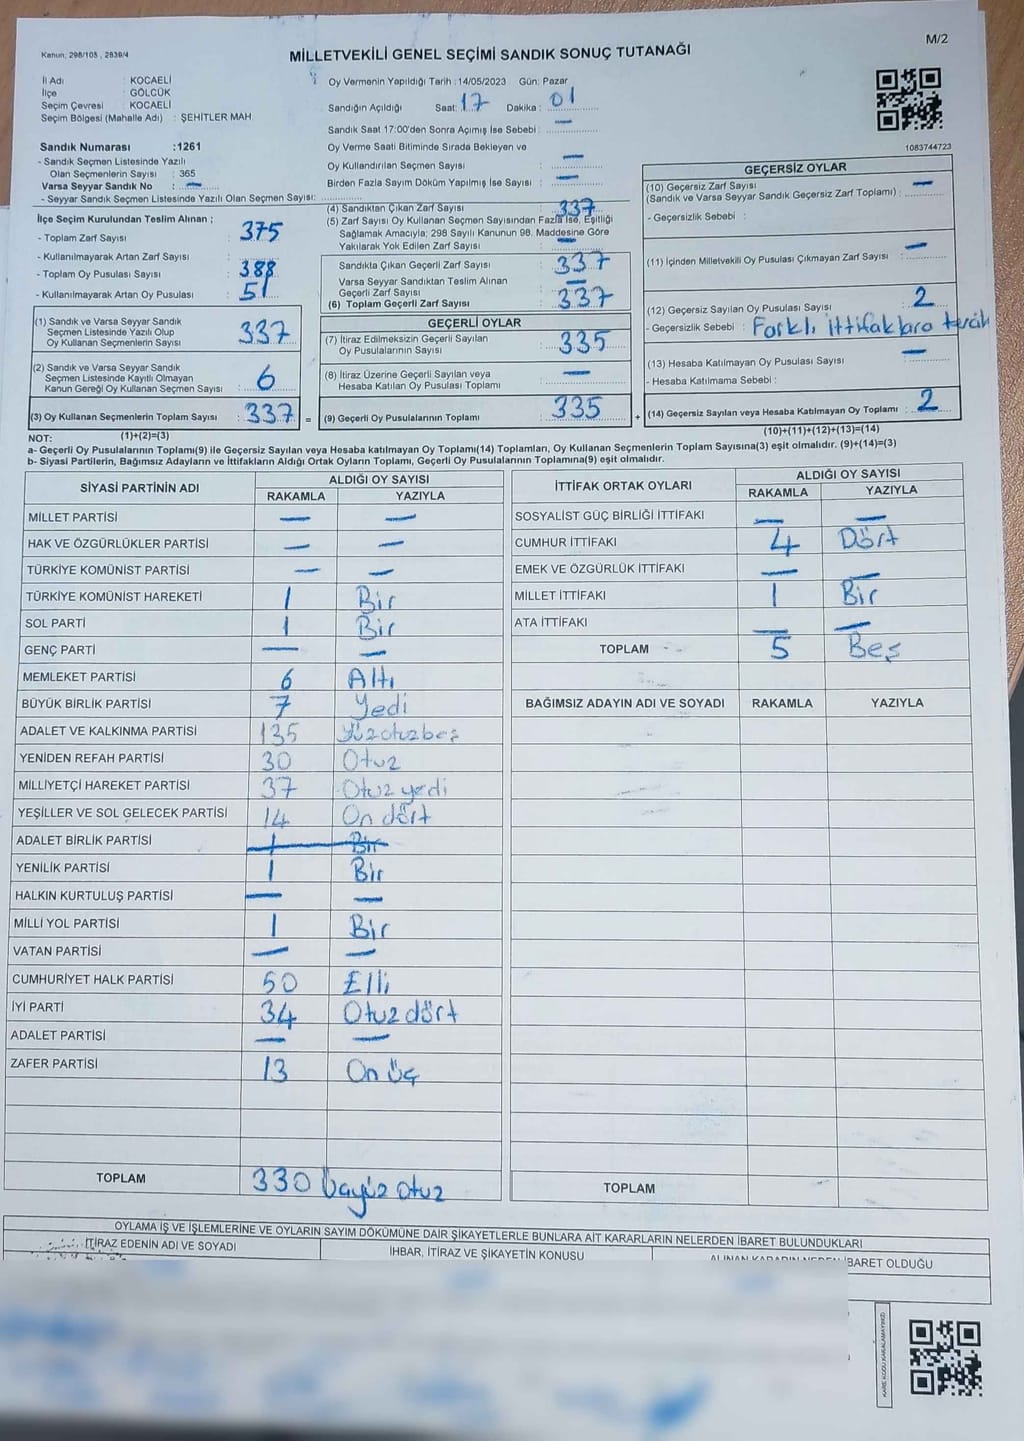 Kanun; 298/105 , 2839/4
MİLLETVEKİLİ GENEL SEÇİMİ SANDIK SONUÇ TUTANAĞI
M/2
İl Adı : KOCAELİ
İlçe : GÖLCÜK
Seçim Çevresi : KOCAELİ
Seçim Bölgesi (Mahalle Adı) : ŞEHİTLER MAH.
Sandık Numarası :1261
- Sandık Seçmen Listesinde Yazılı
Olan Seçmenlerin Sayısı : 365
Varsa Seyyar Sandık No : —
- Seyyar Sandık Seçmen Listesinde Yazılı Olan Seçmen Sayısı:
Oy Vermenin Yapıldığı Tarih :14/05/2023 Gün: Pazar
Sandığın Açıldığı Saat: 17 Dakika : 01
Sandık Saat 17:00'den Sonra Açımış İse Sebebi : —
Oy Verme Saati Bitiminde Sırada Bekleyen ve
Oy Kullandırılan Seçmen Sayısı : —
Birden Fazla Sayım Döküm Yapılmış İse Sayısı : —
1083744723
İlçe Seçim Kurulundan Teslim Alınan ;
- Toplam Zarf Sayısı : 375
- Kullanılmayarak Artan Zarf Sayısı :
- Toplam Oy Pusulası Sayısı : 388
- Kullanılmayarak Artan Oy Pusulası : 51
(1) Sandık ve Varsa Seyyar Sandık
Seçmen Listesinde Yazılı Olup
Oy Kullanan Seçmenlerin Sayısı : 337
(2) Sandık ve Varsa Seyyar Sandık
Seçmen Listesinde Kayıtlı Olmayan
Kanun Gereği Oy Kullanan Seçmen Sayısı : 6
(3) Oy Kullanan Seçmenlerin Toplam Sayısı : 337 =
(4) Sandıktan Çıkan Zarf Sayısı : 337
(5) Zarf Sayısı Oy Kullanan Seçmen Sayısından Fazla İse, Eşitliği
Sağlamak Amacıyla; 298 Sayılı Kanunun 98. Maddesine Göre
Yakılarak Yok Edilen Zarf Sayısı : —
Sandıkta Çıkan Geçerli Zarf Sayısı : 337
Varsa Seyyar Sandıktan Teslim Alınan
Geçerli Zarf Sayısı : —
(6) Toplam Geçerli Zarf Sayısı : 337
GEÇERLİ OYLAR
(7) İtiraz Edilmeksizin Geçerli Sayılan
Oy Pusulalarının Sayısı : 335
(8) İtiraz Üzerine Geçerli Sayılan veya
Hesaba Katılan Oy Pusulası Toplamı : —
(9) Geçerli Oy Pusulalarının Toplamı : 335 +
GEÇERSİZ OYLAR
(10) Geçersiz Zarf Sayısı
(Sandık ve Varsa Seyyar Sandık Geçersiz Zarf Toplamı) : —
- Geçersizlik Sebebi :
(11) İçinden Milletvekili Oy Pusulası Çıkmayan Zarf Sayısı : —
(12) Geçersiz Sayılan Oy Pusulası Sayısı : 2
- Geçersizlik Sebebi : Farklı ittifaklara tercih
(13) Hesaba Katılmayan Oy Pusulası Sayısı : —
- Hesaba Katılmama Sebebi :
(14) Geçersiz Sayılan veya Hesaba Katılmayan Oy Toplamı : 2
NOT: (1)+(2)=(3)
(10)+(11)+(12)+(13)=(14)
a- Geçerli Oy Pusulalarının Toplamı(9) ile Geçersiz Sayılan veya Hesaba katılmayan Oy Toplamı(14) Toplamları, Oy Kullanan Seçmenlerin Toplam Sayısına(3) eşit olmalıdır. (9)+(14)=(3)
b- Siyasi Partilerin, Bağımsız Adayların ve İttifakların Aldığı Ortak Oyların Toplamı, Geçerli Oy Pusulalarının Toplamına(9) eşit olmalıdır.
SİYASİ PARTİNİN ADI ALDIĞI OY SAYISI
RAKAMLA YAZIYLA
MİLLET PARTİSİ — —
HAK VE ÖZGÜRLÜKLER PARTİSİ — —
TÜRKİYE KOMÜNİST PARTİSİ — —
TÜRKİYE KOMÜNİST HAREKETİ 1 Bir
SOL PARTİ 1 Bir
GENÇ PARTİ — —
MEMLEKET PARTİSİ 6 Altı
BÜYÜK BİRLİK PARTİSİ 7 Yedi
ADALET VE KALKINMA PARTİSİ 135 Yüzotuzbeş
YENİDEN REFAH PARTİSİ 30 Otuz
MİLLİYETÇİ HAREKET PARTİSİ 37 Otuz yedi
YEŞİLLER VE SOL GELECEK PARTİSİ 14 On dört
ADALET BİRLİK PARTİSİ 1 Bir
YENİLİK PARTİSİ 1 Bir
HALKIN KURTULUŞ PARTİSİ — —
MİLLİ YOL PARTİSİ 1 Bir
VATAN PARTİSİ — —
CUMHURİYET HALK PARTİSİ 50 Elli
İYİ PARTİ 34 Otuz dört
ADALET PARTİSİ — —
ZAFER PARTİSİ 13 On üç
TOPLAM 330 Üçyüz otuz
İTTİFAK ORTAK OYLARI ALDIĞI OY SAYISI
RAKAMLA YAZIYLA
SOSYALİST GÜÇ BİRLİĞİ İTTİFAKI — —
CUMHUR İTTİFAKI 4 Dört
EMEK VE ÖZGÜRLÜK İTTİFAKI — —
MİLLET İTTİFAKI 1 Bir
ATA İTTİFAKI — —
TOPLAM 5 Beş
BAĞIMSIZ ADAYIN ADI VE SOYADI RAKAMLA YAZIYLA
TOPLAM
OYLAMA İŞ VE İŞLEMLERİNE VE OYLARIN SAYIM DÖKÜMÜNE DAİR ŞİKAYETLERLE BUNLARA AİT KARARLARIN NELERDEN İBARET BULUNDUKLARI
İTİRAZ EDENİN ADI VE SOYADI
İHBAR, İTİRAZ VE ŞİKAYETİN KONUSU
ALINAN KARARIN NEDEN İBARET OLDUĞU
KARE KODU KARALAMAYINIZ!